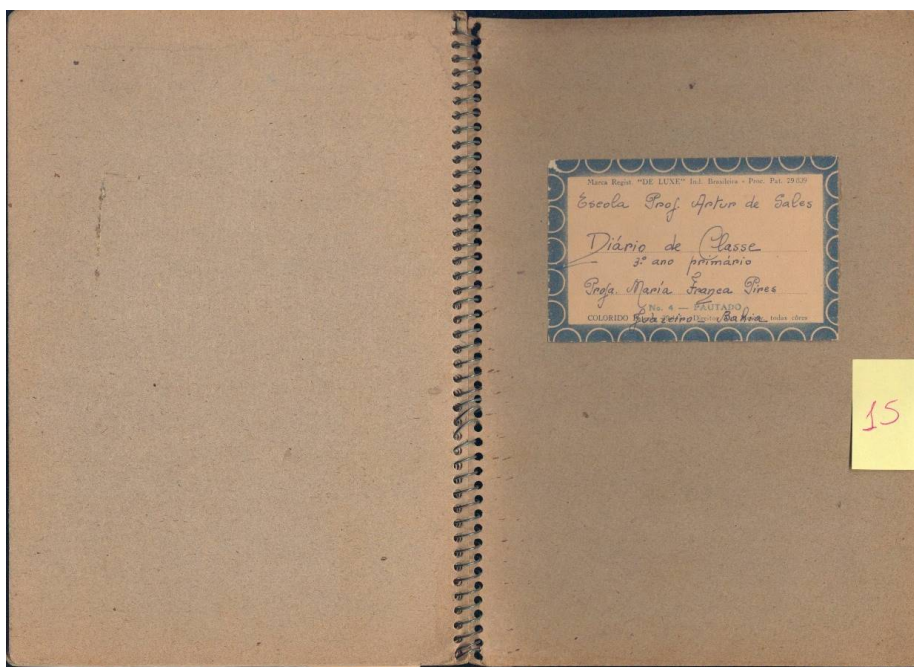 Marca Regist. "DE LUXE" Ind. Brasileira - Proc. Pat. 29.829
Escola Prof Artur de Sales
Diário de Classe
3º ano primário
Profa. María Franca Pires
No. 4 — PAUTADO
COLORIDO
Juazeiro - Bahia
todas
15